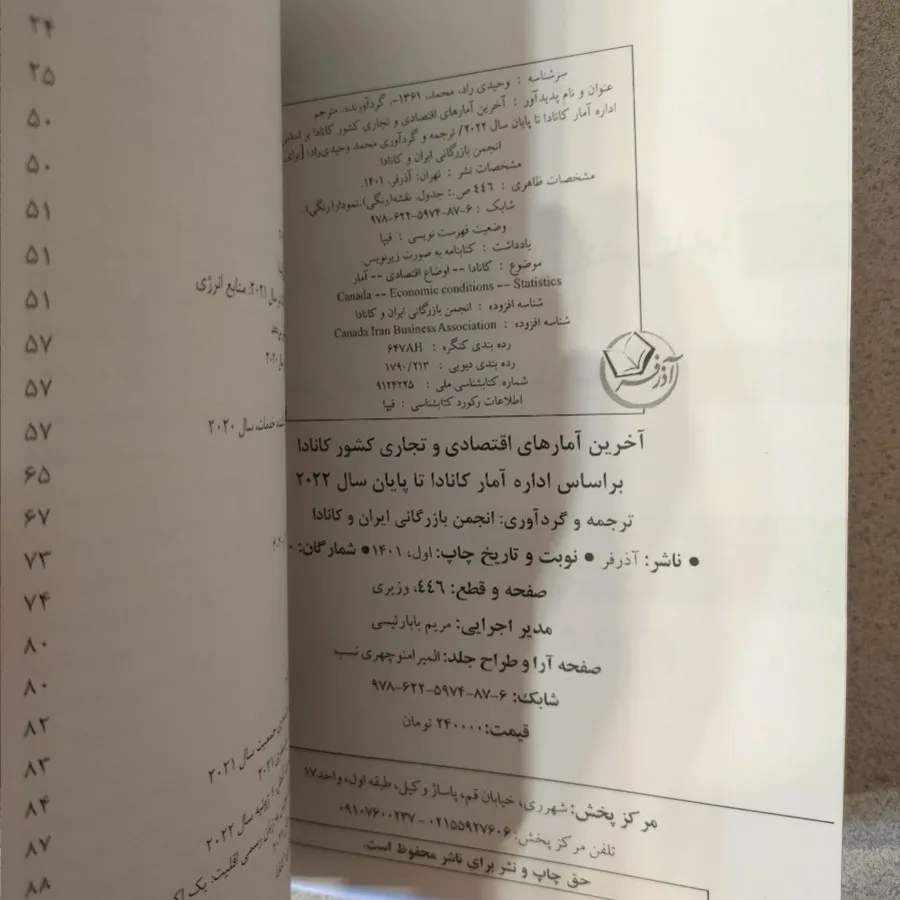 سرشناسه : وحیدی راد، محمد، ۱۳۶۱-، گردآورنده، مترجم
عنوان و نام پدیدآور : آخرین آمارهای اقتصادی و تجاری کشور کانادا بر اساس
اداره آمار کانادا تا پایان سال ۲۰۲۲/ ترجمه و گردآوری محمد وحیدی‌راد؛ [برای
انجمن بازرگانی ایران و کانادا.
مشخصات نشر : تهران: آذرفر، ۱۴۰۱.
مشخصات ظاهری : ۴۴۶ ص.: جدول، نقشه(رنگی)،نمودار(رنگی).
شابک : ۹۷۸-۶۲۲-۵۹۷۴-۸۷-۶
وضعیت فهرست نویسی : فیپا
یادداشت : کتابنامه به صورت زیرنویس.
موضوع : کانادا -- اوضاع اقتصادی -- آمار
Canada -- Economic conditions -- Statistics
شناسه افزوده : انجمن بازرگانی ایران و کانادا
شناسه افزوده : Canada Iran Business Association
رده بندی کنگره : ۶۴۷AH
رده بندی دیویی : ۱۷۹۰/۲۱۳
شماره کتابشناسی ملی : ۹۱۲۴۲۲۵
اطلاعات رکورد کتابشناسی : فیپا
آذرفر
آخرین آمارهای اقتصادی و تجاری کشور کانادا
براساس اداره آمار کانادا تا پایان سال ۲۰۲۲
ترجمه و گردآوری: انجمن بازرگانی ایران و کانادا
● ناشر: آذرفر ● نوبت و تاریخ چاپ: اول، ۱۴۰۱ ● شمارگان:
صفحه و قطع: ۴۴۶، وزیری
مدیر اجرایی: مریم بابارئیسی
صفحه آرا و طراح جلد: المیرا منوچهری نسب
شابک: ۹۷۸-۶۲۲-۵۹۷۴-۸۷-۶
قیمت: ۲۴۰۰۰۰ تومان
مرکز پخش: شهرری، خیابان قم، پاساژ وکیل، طبقه اول، واحد۱۷
تلفن مرکز پخش: ۰۲۱۵۵۹۲۷۶۰۶ - ۰۹۱۰۷۶۰۰۲۳۷
حق چاپ و نشر برای ناشر محفوظ است.
۲۴
۲۵
۵۰
۵۰
۵۱
۵۱
سال ۲۰۲۱: منابع انرژی
۵۱
۵۷
۲۰۲۰
۵۷
خدمات، سال ۲۰۲۰
۵۷
۶۵
۶۷
۷۳
۷۴
۸۰
۸۰
۸۲
جمعیت سال ۲۰۲۱
۸۳
۸۴
ژوئیه سال ۲۰۲۲
۸۷
زبان رسمی اقلیت: یک
۸۸